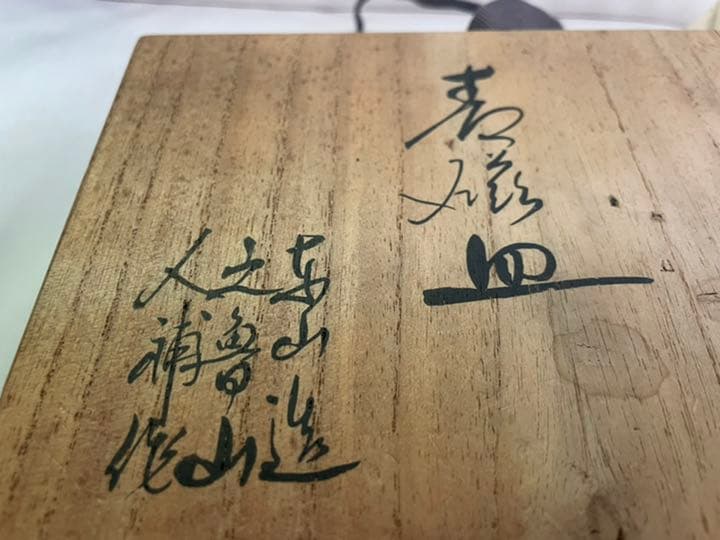 青磁皿
東山造
之魯山
人補作